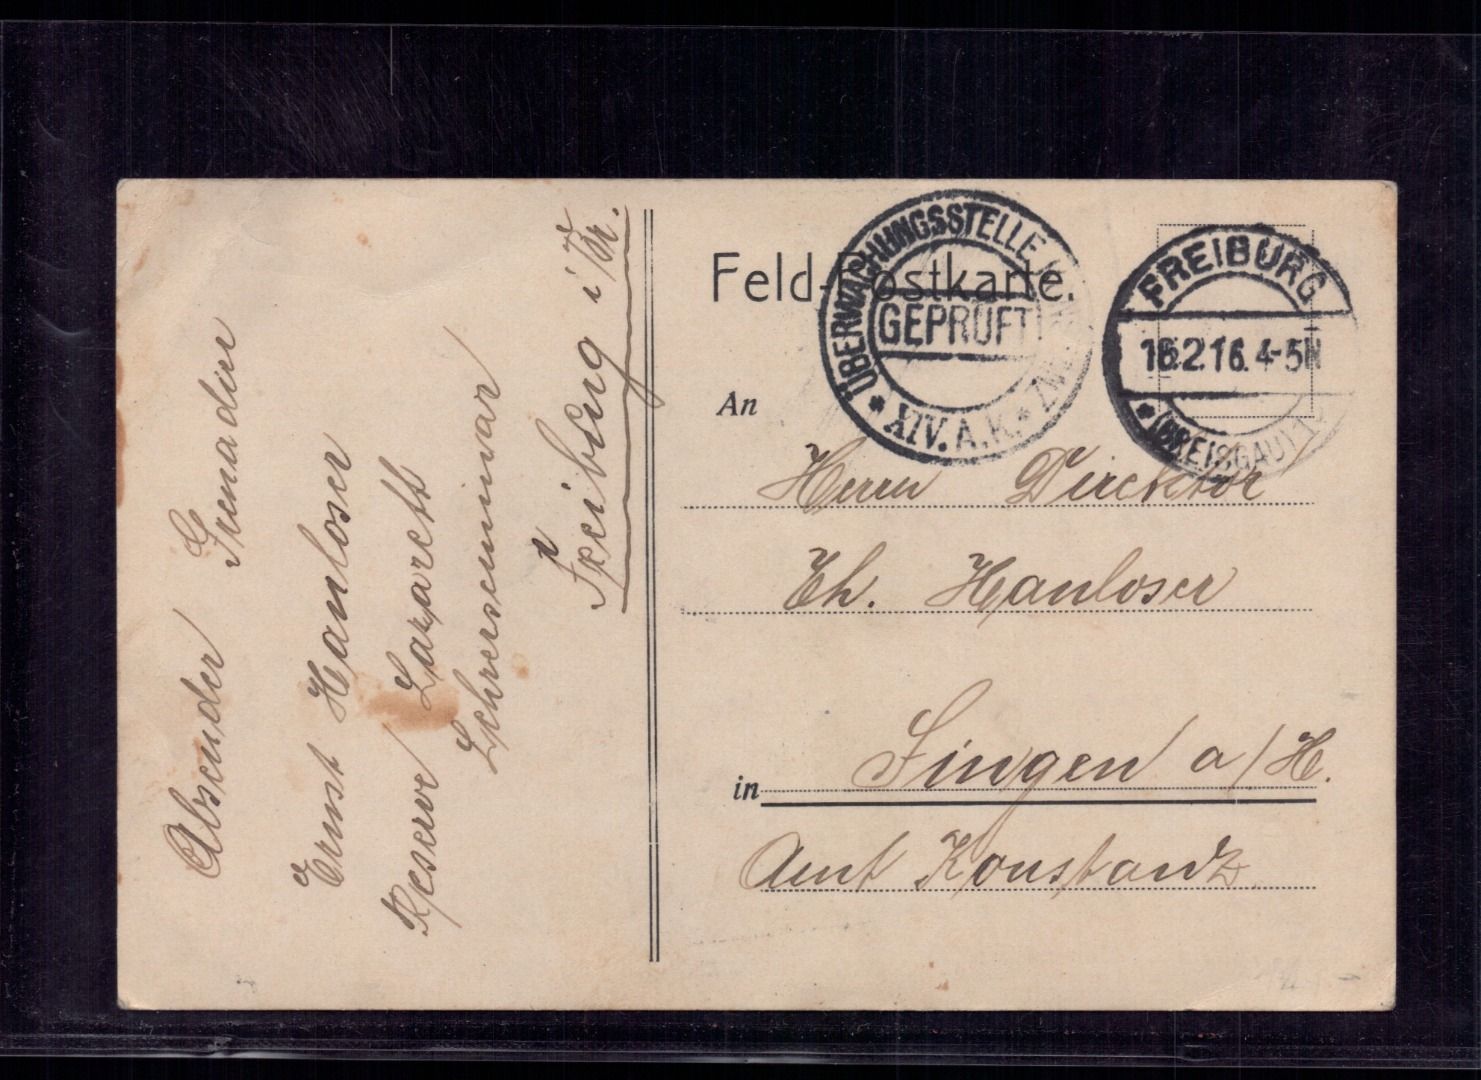 Absender Grenadier
Ernst Hanloser
Reserve Lazarett
Lehrerseminar
Freiburg i/Br.
Feld-Postkarte.
ÜBERWACHUNGSSTELLE
GEPRÜFT
* XIV. A. K. *
FREIBURG
16.2.16. 4-5N
* (BREISGAU) 1
An
Herrn Direktor
Th. Hanloser
in Singen a/H.
Amt Konstanz.